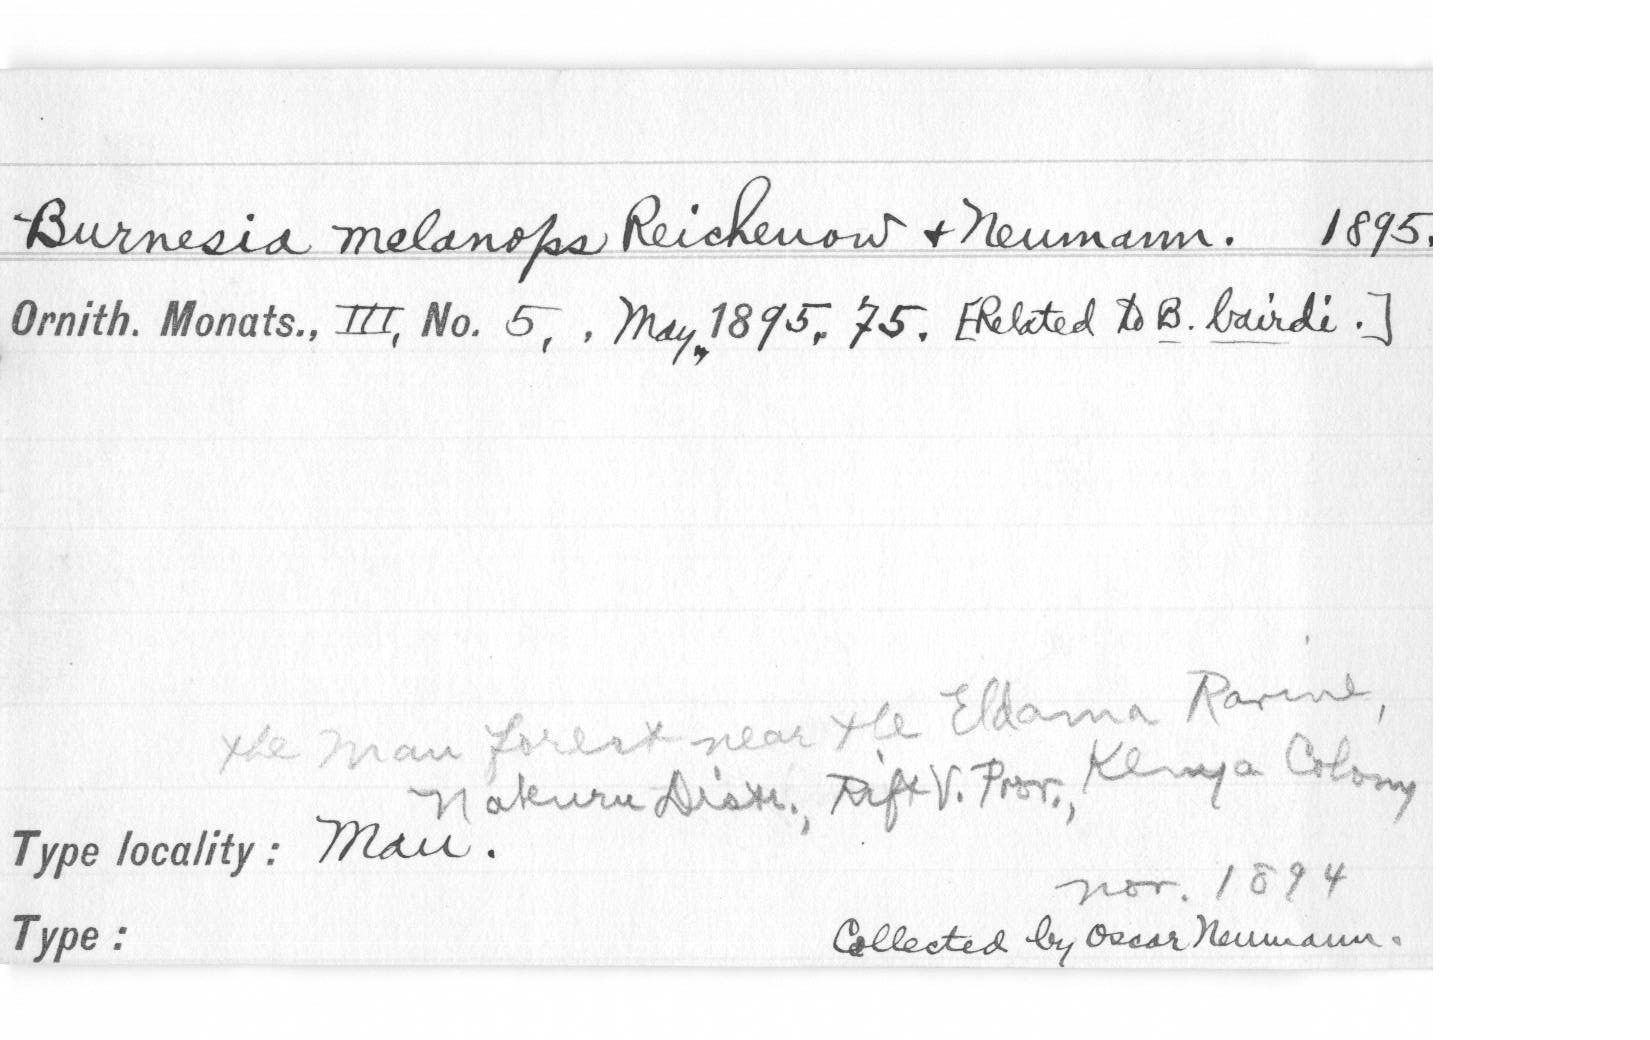 Burnesia melanops Reichenow + Neumann. 1895.
Ornith. Monats., III, No. 5, , May, 1895, 75. [Related to B. bairdi.]
the Mau forest near the Eldama Ravine,
Nakuru Distr., Rift V. Prov., Kenya Colony
Type locality: Mau.
Nov. 1894
Type: Collected by Oscar Neumann.